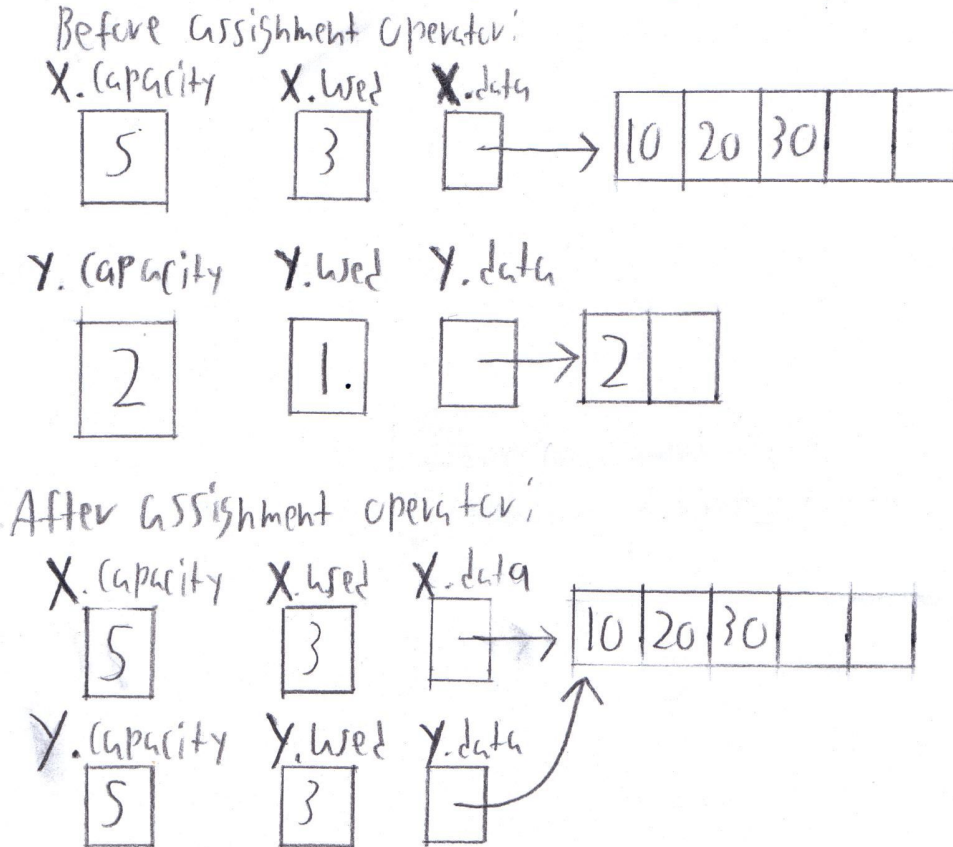 Before assignment operator:
X.capacity X.used X.data
5 3 10 20 30
Y.capacity Y.used Y.data
2 1. 2
After assignment operator:
X.capacity X.used X.data
5 3 10 20 30
Y.capacity Y.used Y.data
5 3